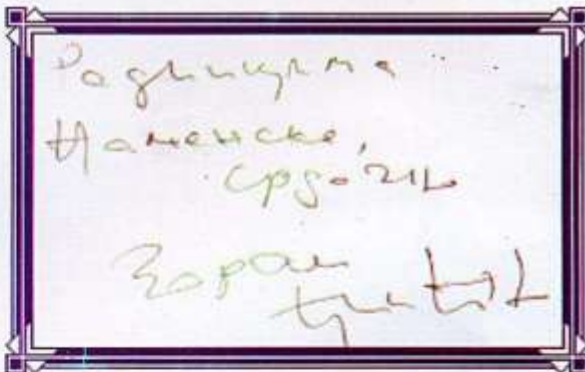 Радницима
Наменске,
срдачно
Зоран